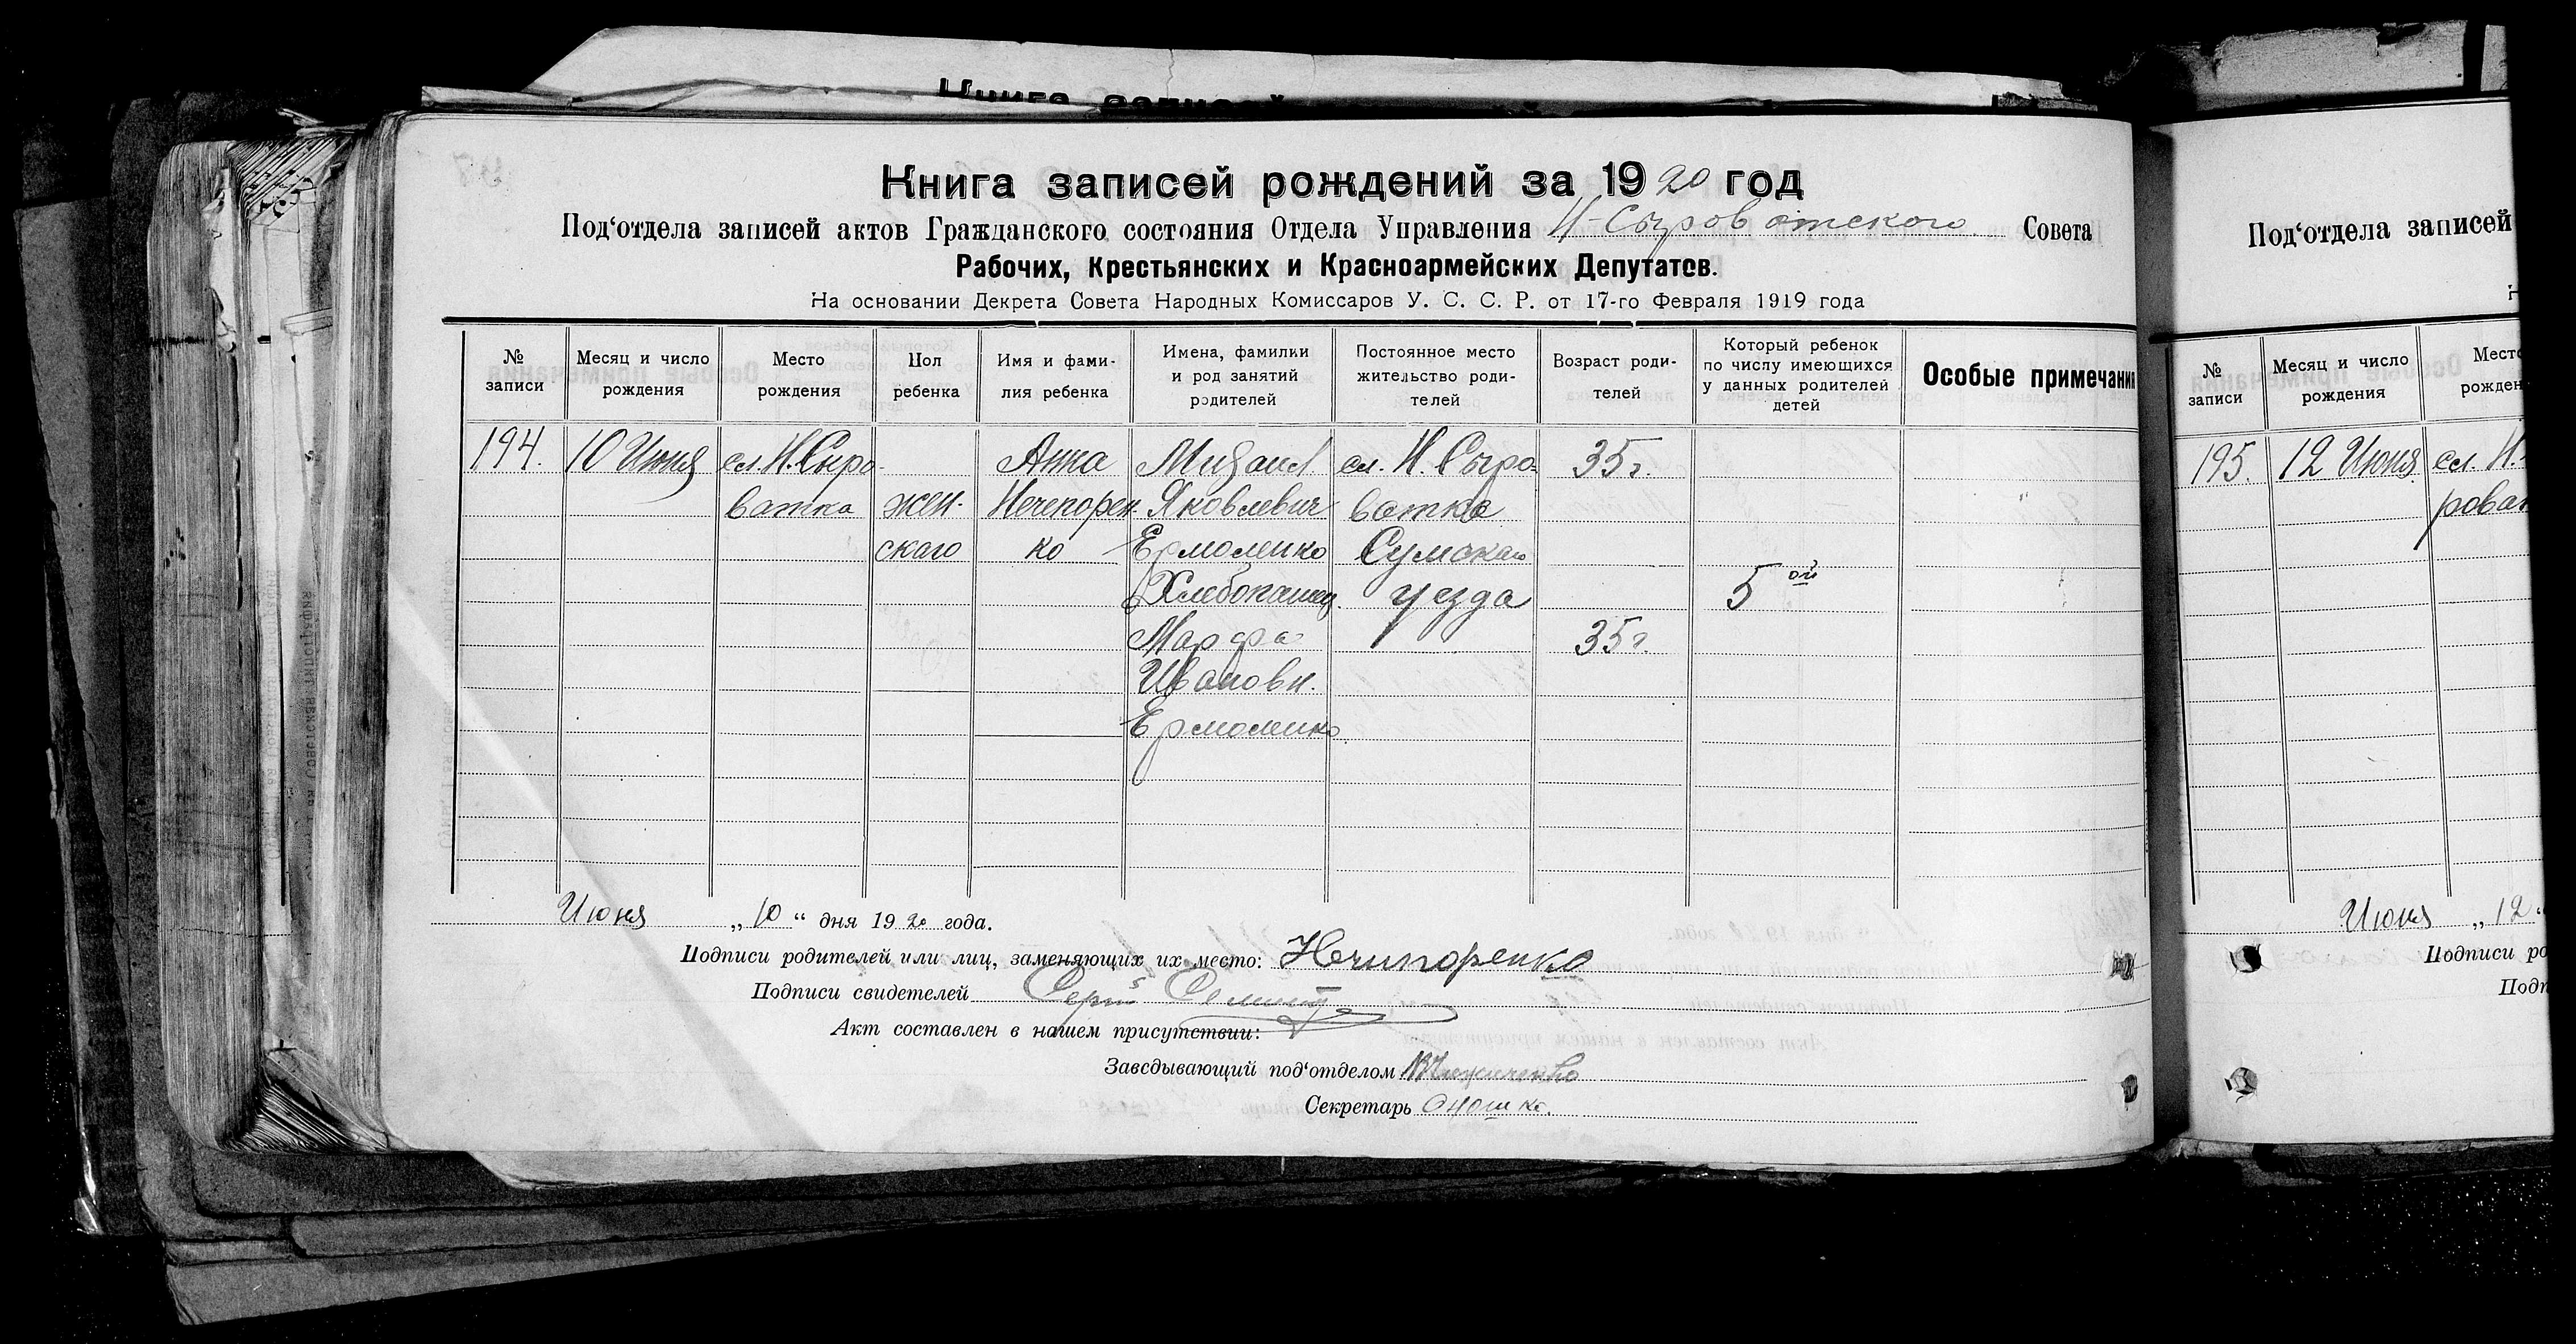 Книга записей рождений за 1920 год
Под‘отдела записей актов Гражданского состояния Отдела Управления Н-Сыроватского Совета
Рабочих, Крестьянских и Красноармейских Депутатов.
На основании Декрета Совета Народных Комиссаров У. С. С. Р. от 17-го Февраля 1919 года
№ записи
Месяц и число рождения
Место рождения
Пол ребенка
Имя и фами-
лия ребенка
Имена, фамилии
и род занятий
родителей
Постоянное место
жительство роди-
телей
Возраст роди-
телей
Который ребенок
по числу имеющихся
у данных родителей
детей
Особые примечани
194.
10 Июня
сл. Н. Сыро-
ватка
жен-
скаго
Анна
Нечепорен-
ко
Михаил
Яковлевич
Ермоленко
Хлебопашец
Марфа
Ивановн.
Ермоленко
сл. Н. Сыро-
ватка
Сумскаго
уезда
35 г.
35 г.
5 ой
Июня „10“ дня 1920 года.
Подписи родителей или лиц, заменяющих их место: Нечипоренко
Подписи свидетелей Сергій
Акт составлен в нашем присутствии:
Заведывающий под‘отделом
Секретарь
Под‘отдела записей
№ записи
Месяц и число рождения
Место
рожден
195.
12 Июня
сл. Н.
роват
Июня „12“
Подписи ро
Подп